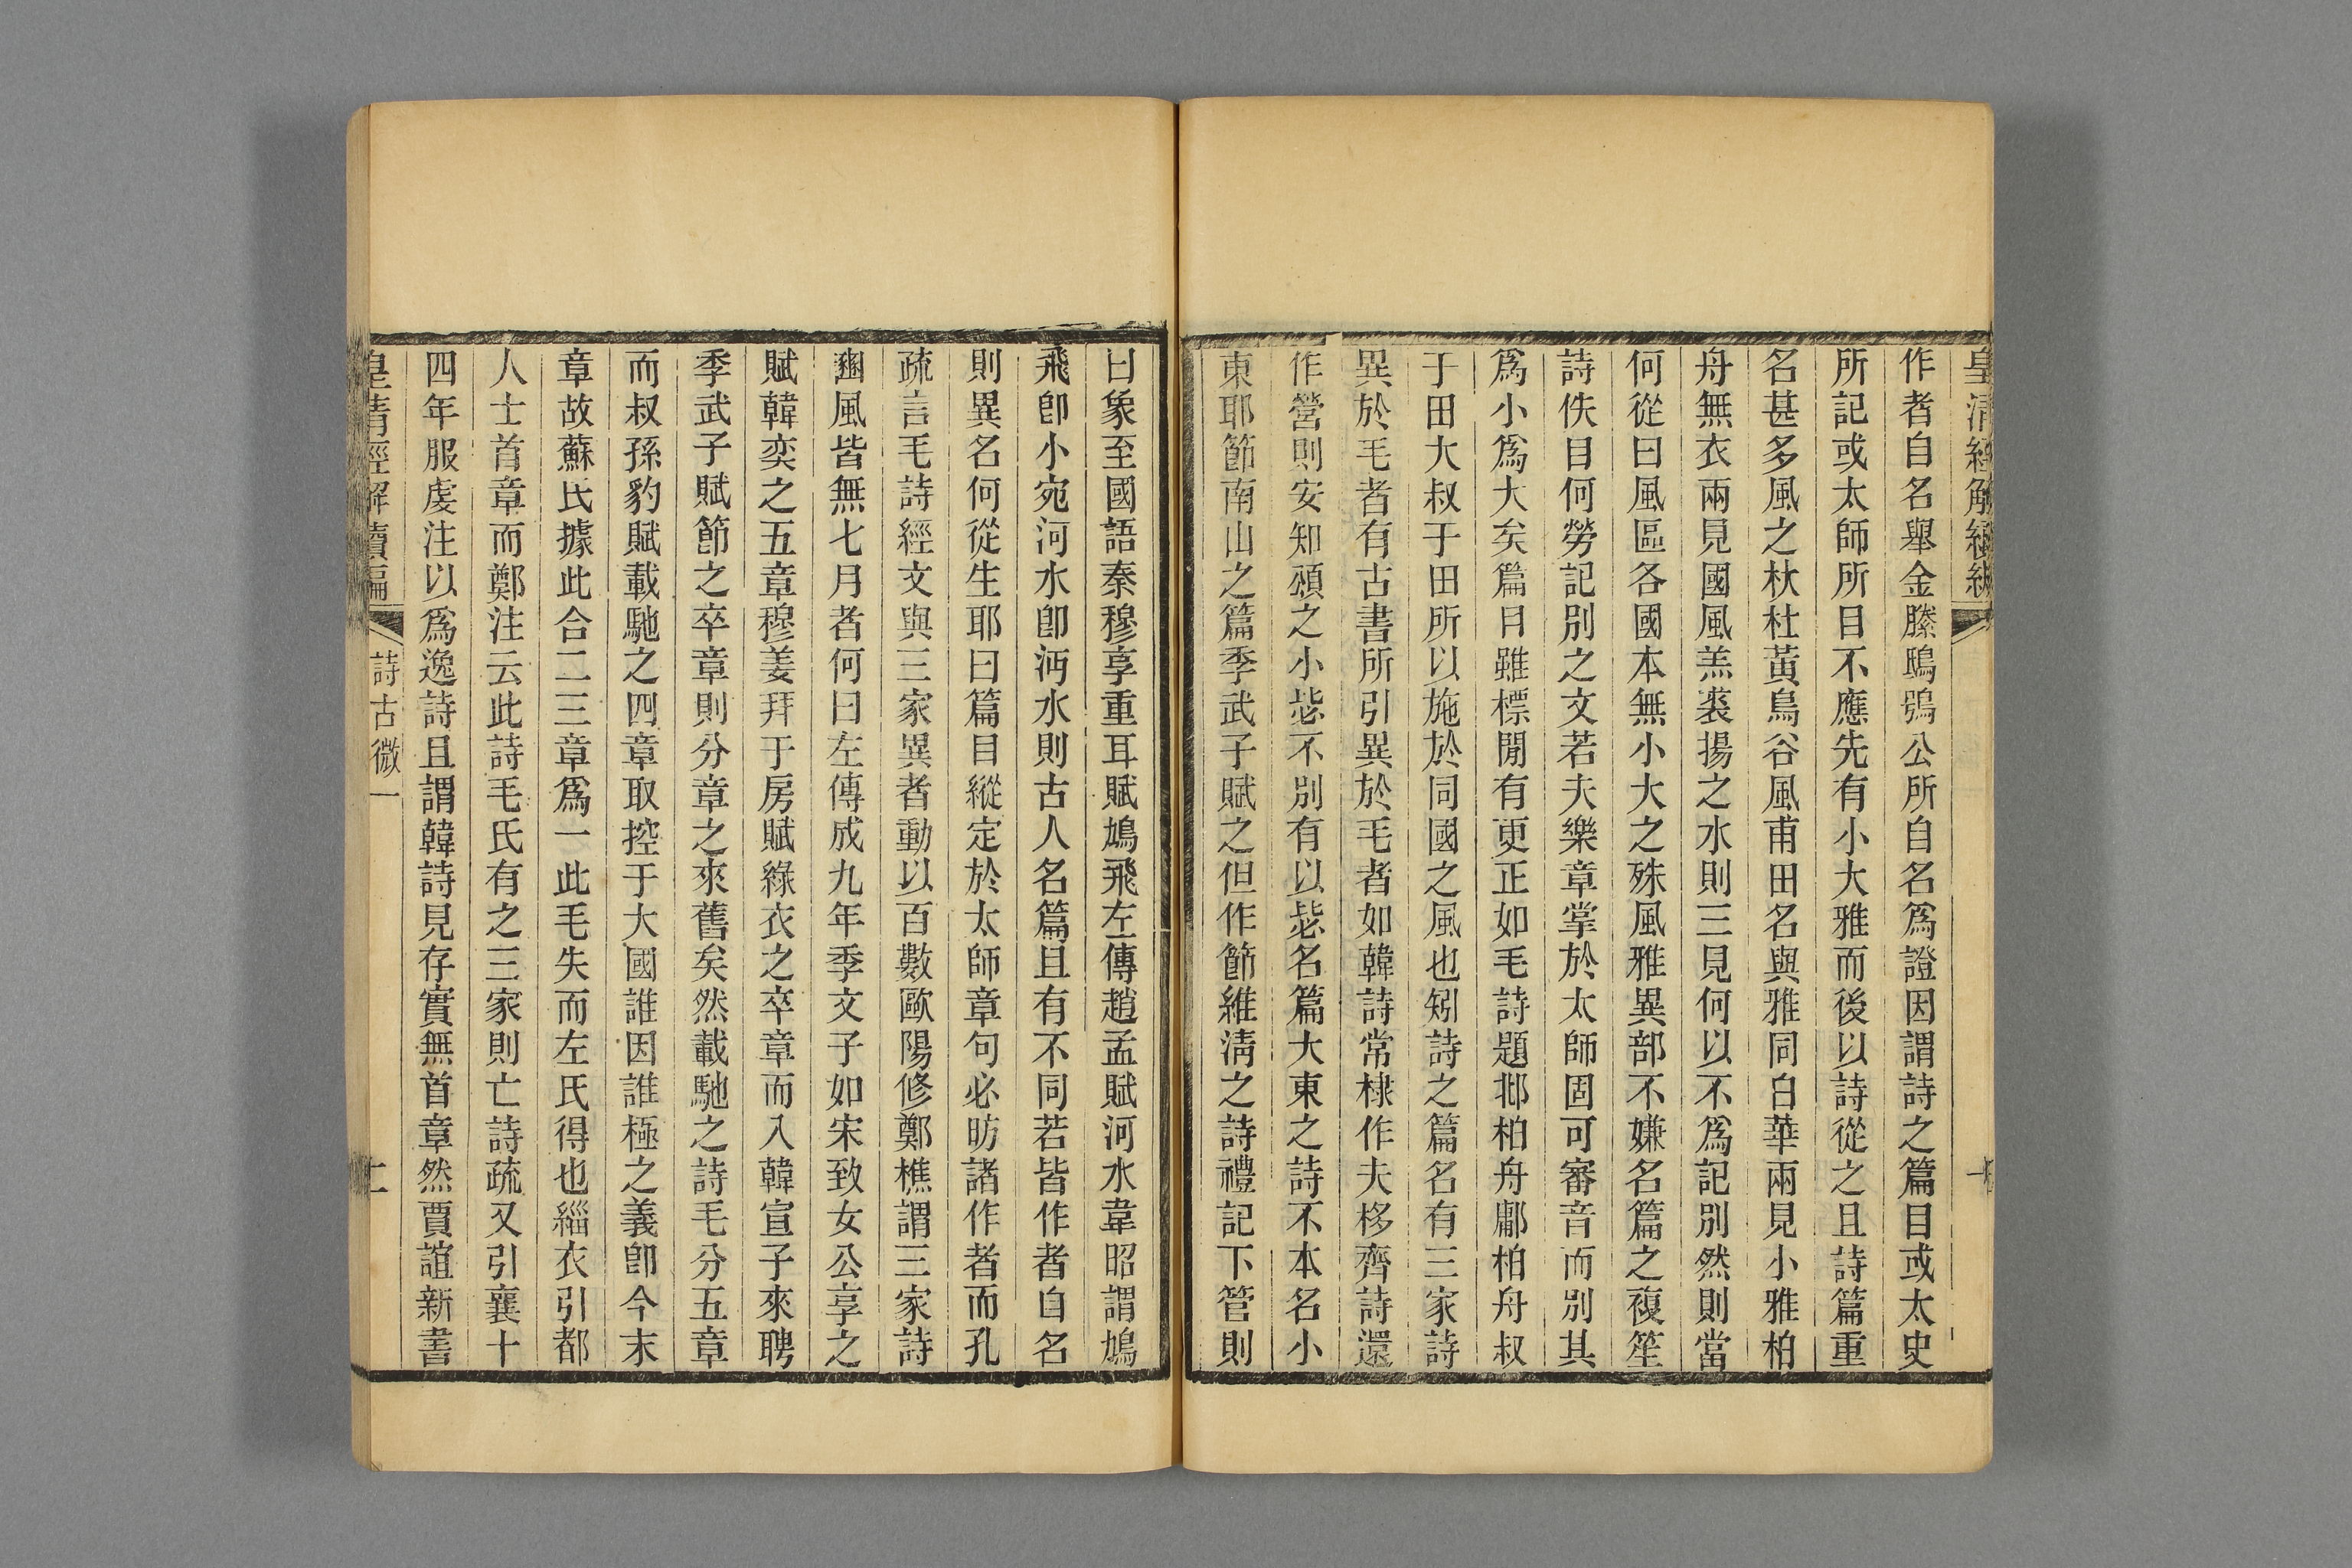 皇清經解續編
作者自名舉金縢鴟鴞公所自名爲證因謂詩之篇目或太史
所記或太師所目不應先有小大雅而後以詩從之且詩篇重
名甚多風之杕杜黃鳥谷風甫田名與雅同白華兩見小雅柏
舟無衣兩見國風羔裘揚之水則三見何以不爲記別然則當
何從曰風區各國本無小大之殊風雅異部不嫌名篇之複笙
詩佚目何勞記別之文若夫樂章掌於太師固可審音而別其
爲小爲大矣篇目雖標閒有更正如毛詩題邶柏舟鄘柏舟叔
于田大叔于田所以施於同國之風也矧詩之篇名有三家詩
異於毛者有古書所引異於毛者如韓詩常棣作夫栘齊詩還
作營則安知頍之小毖不別有以毖名篇大東之詩不本名小
東耶節南山之篇季武子賦之但作節維淸之詩禮記下管則
曰象至國語秦穆享重耳賦鳩飛左傳趙孟賦河水韋昭謂鳩
飛卽小宛河水卽沔水則古人名篇且有不同若皆作者自名
則異名何從生耶曰篇目縱定於太師章句必昉諸作者而孔
疏言毛詩經文與三家異者動以百數歐陽修鄭樵謂三家詩
豳風皆無七月者何曰左傳成九年季文子如宋致女公享之
賦韓奕之五章穆姜拜于房賦綠衣之卒章而入韓宣子來聘
季武子賦節之卒章則分章之來舊矣然載馳之詩毛分五章
而叔孫豹賦載馳之四章取控于大國誰因誰極之義卽今末
章故蘇氏據此合二三章爲一此毛失而左氏得也緇衣引都
人士首章而鄭注云此詩毛氏有之三家則亡詩疏又引襄十
四年服虔注以爲逸詩且謂韓詩見存實無首章然賈誼新書
皇清經解續編 詩古微一